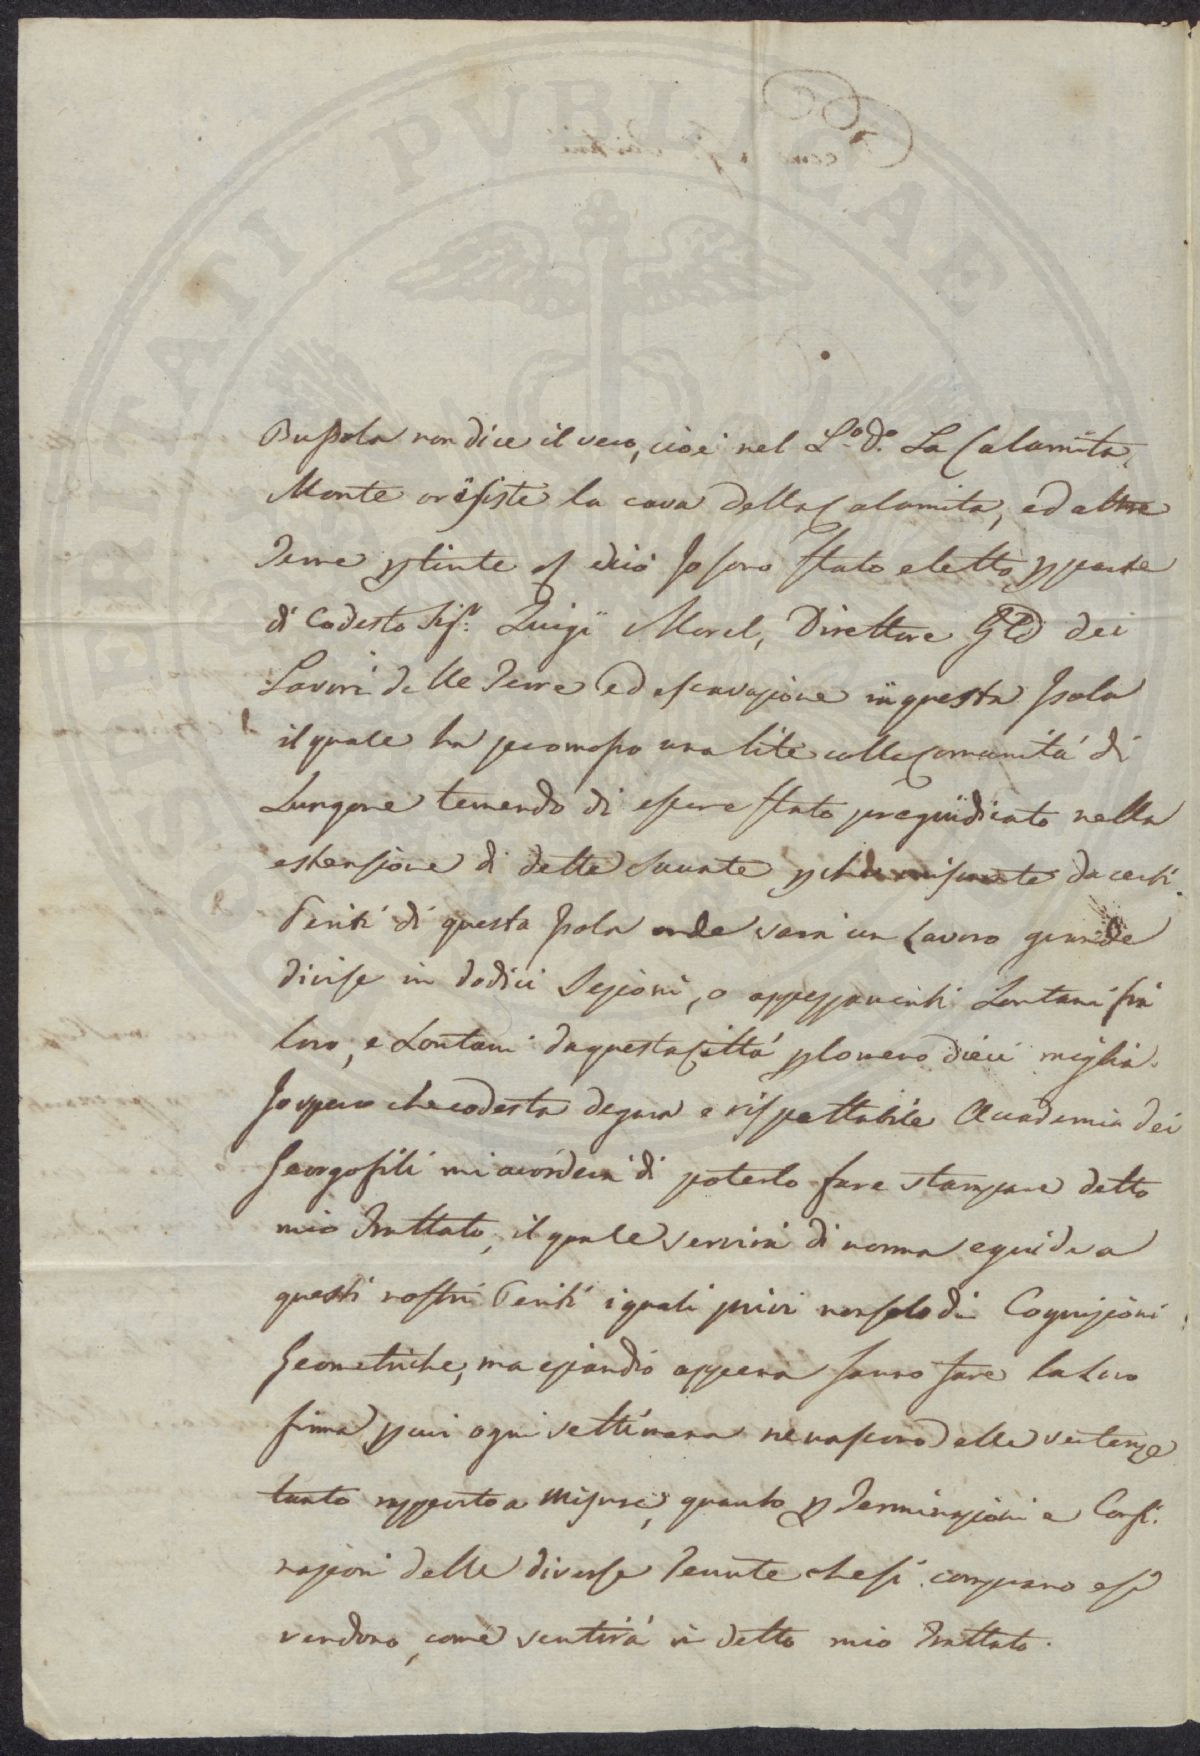 PROSPERITATI PVBLICAE AVGENDAE
Bussola non dice il vero, cioè nel L.º d.º La Calamita,
Monte ov'esiste la cava della Calamita, ed altre
Terre p tinte e di ciò Jo sono stato eletto p parte
di Codesto Sig.r Luigi Morel, Direttore Gle dei
Lavori delle Terre ed escavazione in questa Jsola
il quale ha promosso una lite colla Comunità di
Lungone temendo di essere stato pregiudicato nella
estensione di dette Tenute p che misurate da certi
Periti di questa Jsola onde sarà un Lavoro grande
divise in dodici Sezioni, o appezzamenti Lontani frà
loro, e Lontani da questa Città p lo meno dieci miglia.
Jo spero che codesta degna e rispettabile Accademia dei
Georgofili mi accorderà di poterlo fare stampare detto
mio Trattato, il quale servirà di norma e guida a
questi nostri Periti i quali privi non solo di Cognizioni
Geometriche, ma eziandio appena sanno fare la Loro
firma p cui ogni settimana ne nascono delle vertenze
tanto rapporto a Misure, quanto p Terminazioni e Confi.
nazioni delle diverse Tenute che si comprano e si
vendono, come sentirà in detto mio Trattato.